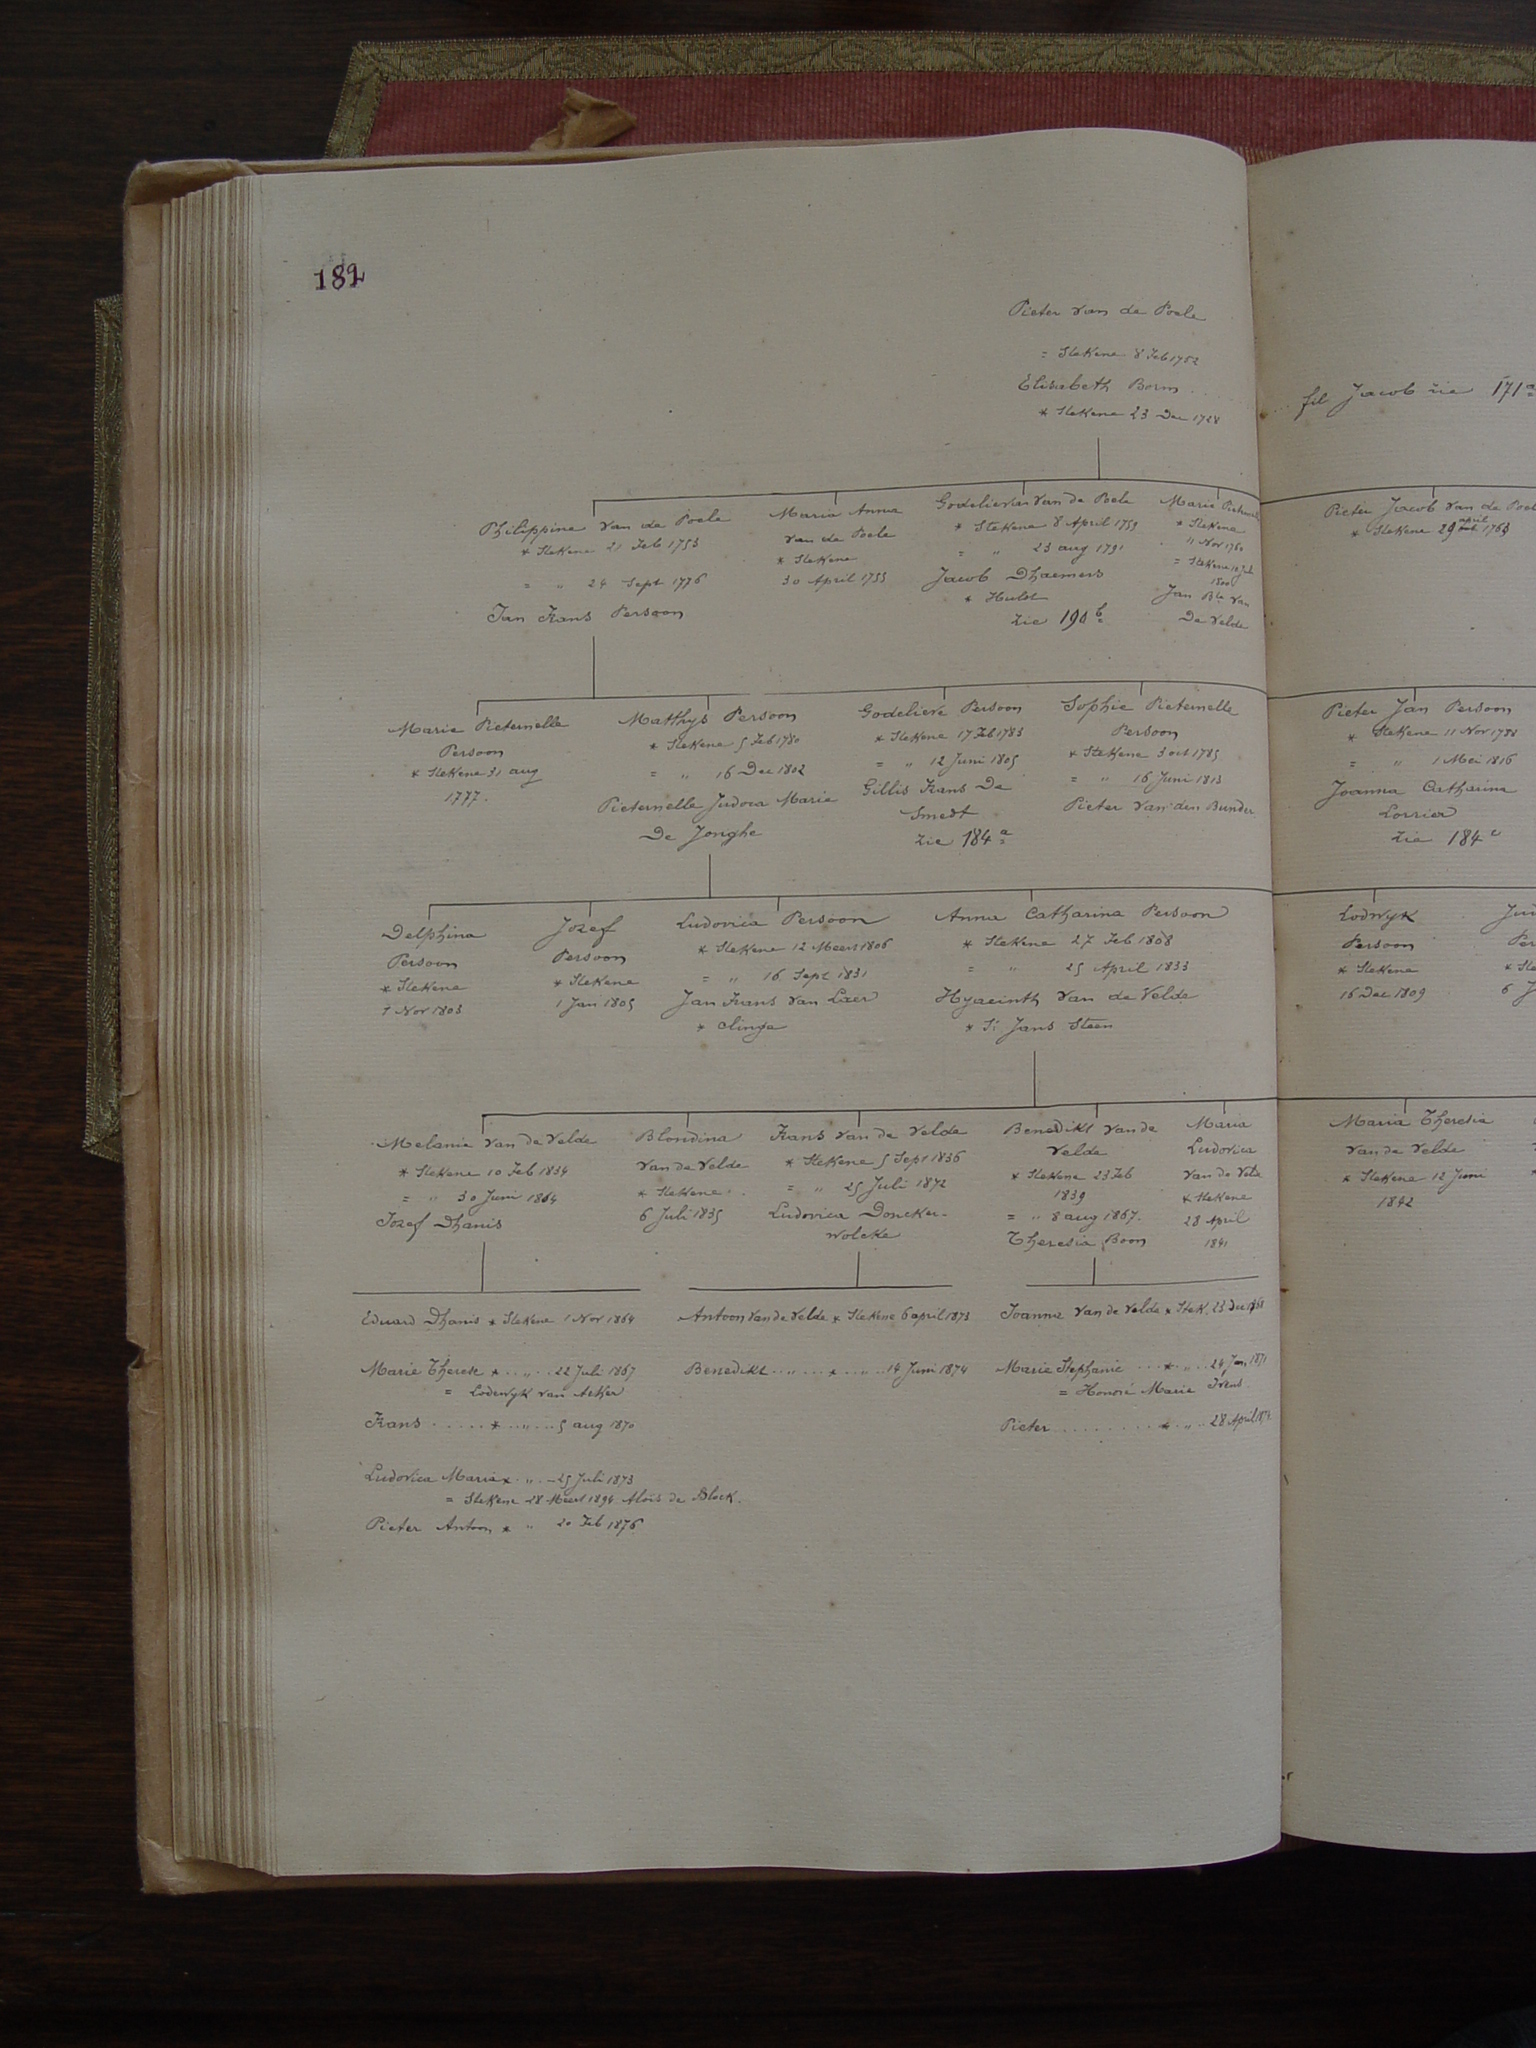 182
Pieter Van de Poele
= Stekene 8 Feb 1752
Elisabeth Borm . . . . . fil Jacob zie 171 a
* Stekene 23 Dec 1728
Philippina Van de Poele
* Stekene 21 Feb 1753
= „ 24 Sept 1776
Jan Frans Persoon
Maria Anna
Van de Poele
* Stekene
30 April 1755
Godelieva Van de Poele
* Stekene 8 April 1759
= „ 23 aug 1791
Jacob Dhaemers
* Hulst
zie 190 b
Maria
* Stekene
11 Nov 1760
= Stekene
1800
Jan Bte Van
De Velde
Pieter Jacob Van de
* Stekene 29 april 1763
Marie Pieternelle
Persoon
* Stekene 31 aug
1777.
Matthys Persoon
* Stekene 5 Feb 1780
= „ 16 Dec 1802
Pieternelle Judoca Marie
De Jonghe
Godelieve Persoon
* Stekene 17 Feb 1783
= „ 12 Juni 1805
Gillis Frans De
Smedt
zie 184 a
Sophie Pieternelle
Persoon
* Stekene 3 oct 1785
= „ 16 Juni 1813
Pieter Van den Bunder
Pieter Jan Persoon
* Stekene 11 Nov 1788
= „ 1 Mei 1816
Joanna Catharina
Lorrier
zie 184 c
Delphina
Persoon
* Stekene
Nov 1803
Jozef
Persoon
* Stekene
1 Jan 1805
Ludovica Persoon
* Stekene 12 Meert 1806
= „ 16 Sept 1831
Jan Frans Van Laer
* Clinge
Anna Catharina Persoon
* Stekene 27 Feb 1808
= „ 25 April 1833
Hyacinth Van de Velde
* St Jans Steen
Lodwyk
Persoon
* Stekene
16 Dec 1809
Melanie Van de Velde
* Stekene 10 Feb 1834
= „ 30 Juni 1864
Jozef Dhanis
Blondina
Van de Velde
* Stekene
6 Juli 1835
Frans Van de Velde
* Stekene 5 Sept 1836
= „ 25 Juli 1872
Ludovica Doncker-
wolcke
Benedikt Van de
Velde
* Stekene 23 Feb
1839
= „ 8 aug 1867.
Theresia Boon
Maria
Ludovica
Van de Velde
* Stekene
28 April
1841
Maria Theresia
Van de Velde
* Stekene 12 Juni
1842
Eduard Dhanis * Stekene 1 Nov 1864
Marie Therese * . . „ . . 22 Juli 1867
= Lodewyk Van Acker
Frans . . . . . * . . „ . . 5 aug 1870
Ludovica Maria * . „ . – 25 Juli 1873
= Stekene 28 Meert 1894 Aloïs de Block.
Pieter Antoon * „ 20 Feb 1876
Antoon Van de Velde * Stekene 6 april 1873
Benedikt . . „ . . * . . „ . . 14 Juni 1874
Joanna Van de Velde * Stek. 23 Dec 1868
Marie Stephanie . . . * . „ . . 24 Jan 1871
= Honoré Marie
Pieter . . . . . . . * . „ . . 28 April